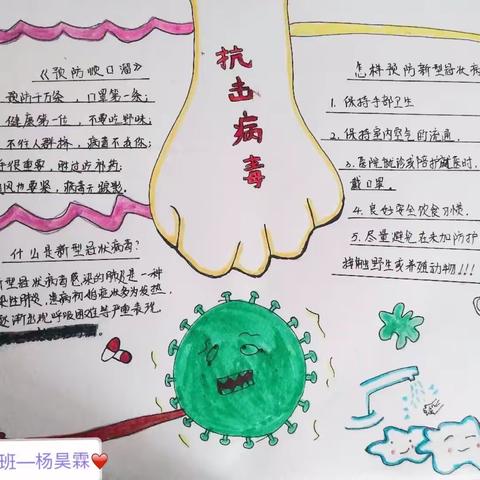 抗击病毒
《预防顺口溜》
预防千万条,口罩第一条;
健康第一位,不要吃野味;
不往人群挤,病毒不
手很重要,胜过吃补药;
风也要紧,病毒无
什么是新型冠状病毒?
型冠状病毒感染的肺炎是一种
染性肺炎,患病初始症状多为发热、
逐渐出现呼吸困难等严重表现
怎样预防新型冠状病
1. 保持手部卫生
2. 保持室内空气的流通.
3. 医院就诊或陪护就医时.
戴口罩。
4. 良好安全饮食习惯.
5. 尽量避免在未加防护
接触野生或养殖动物!!!
班—杨昊霖❤